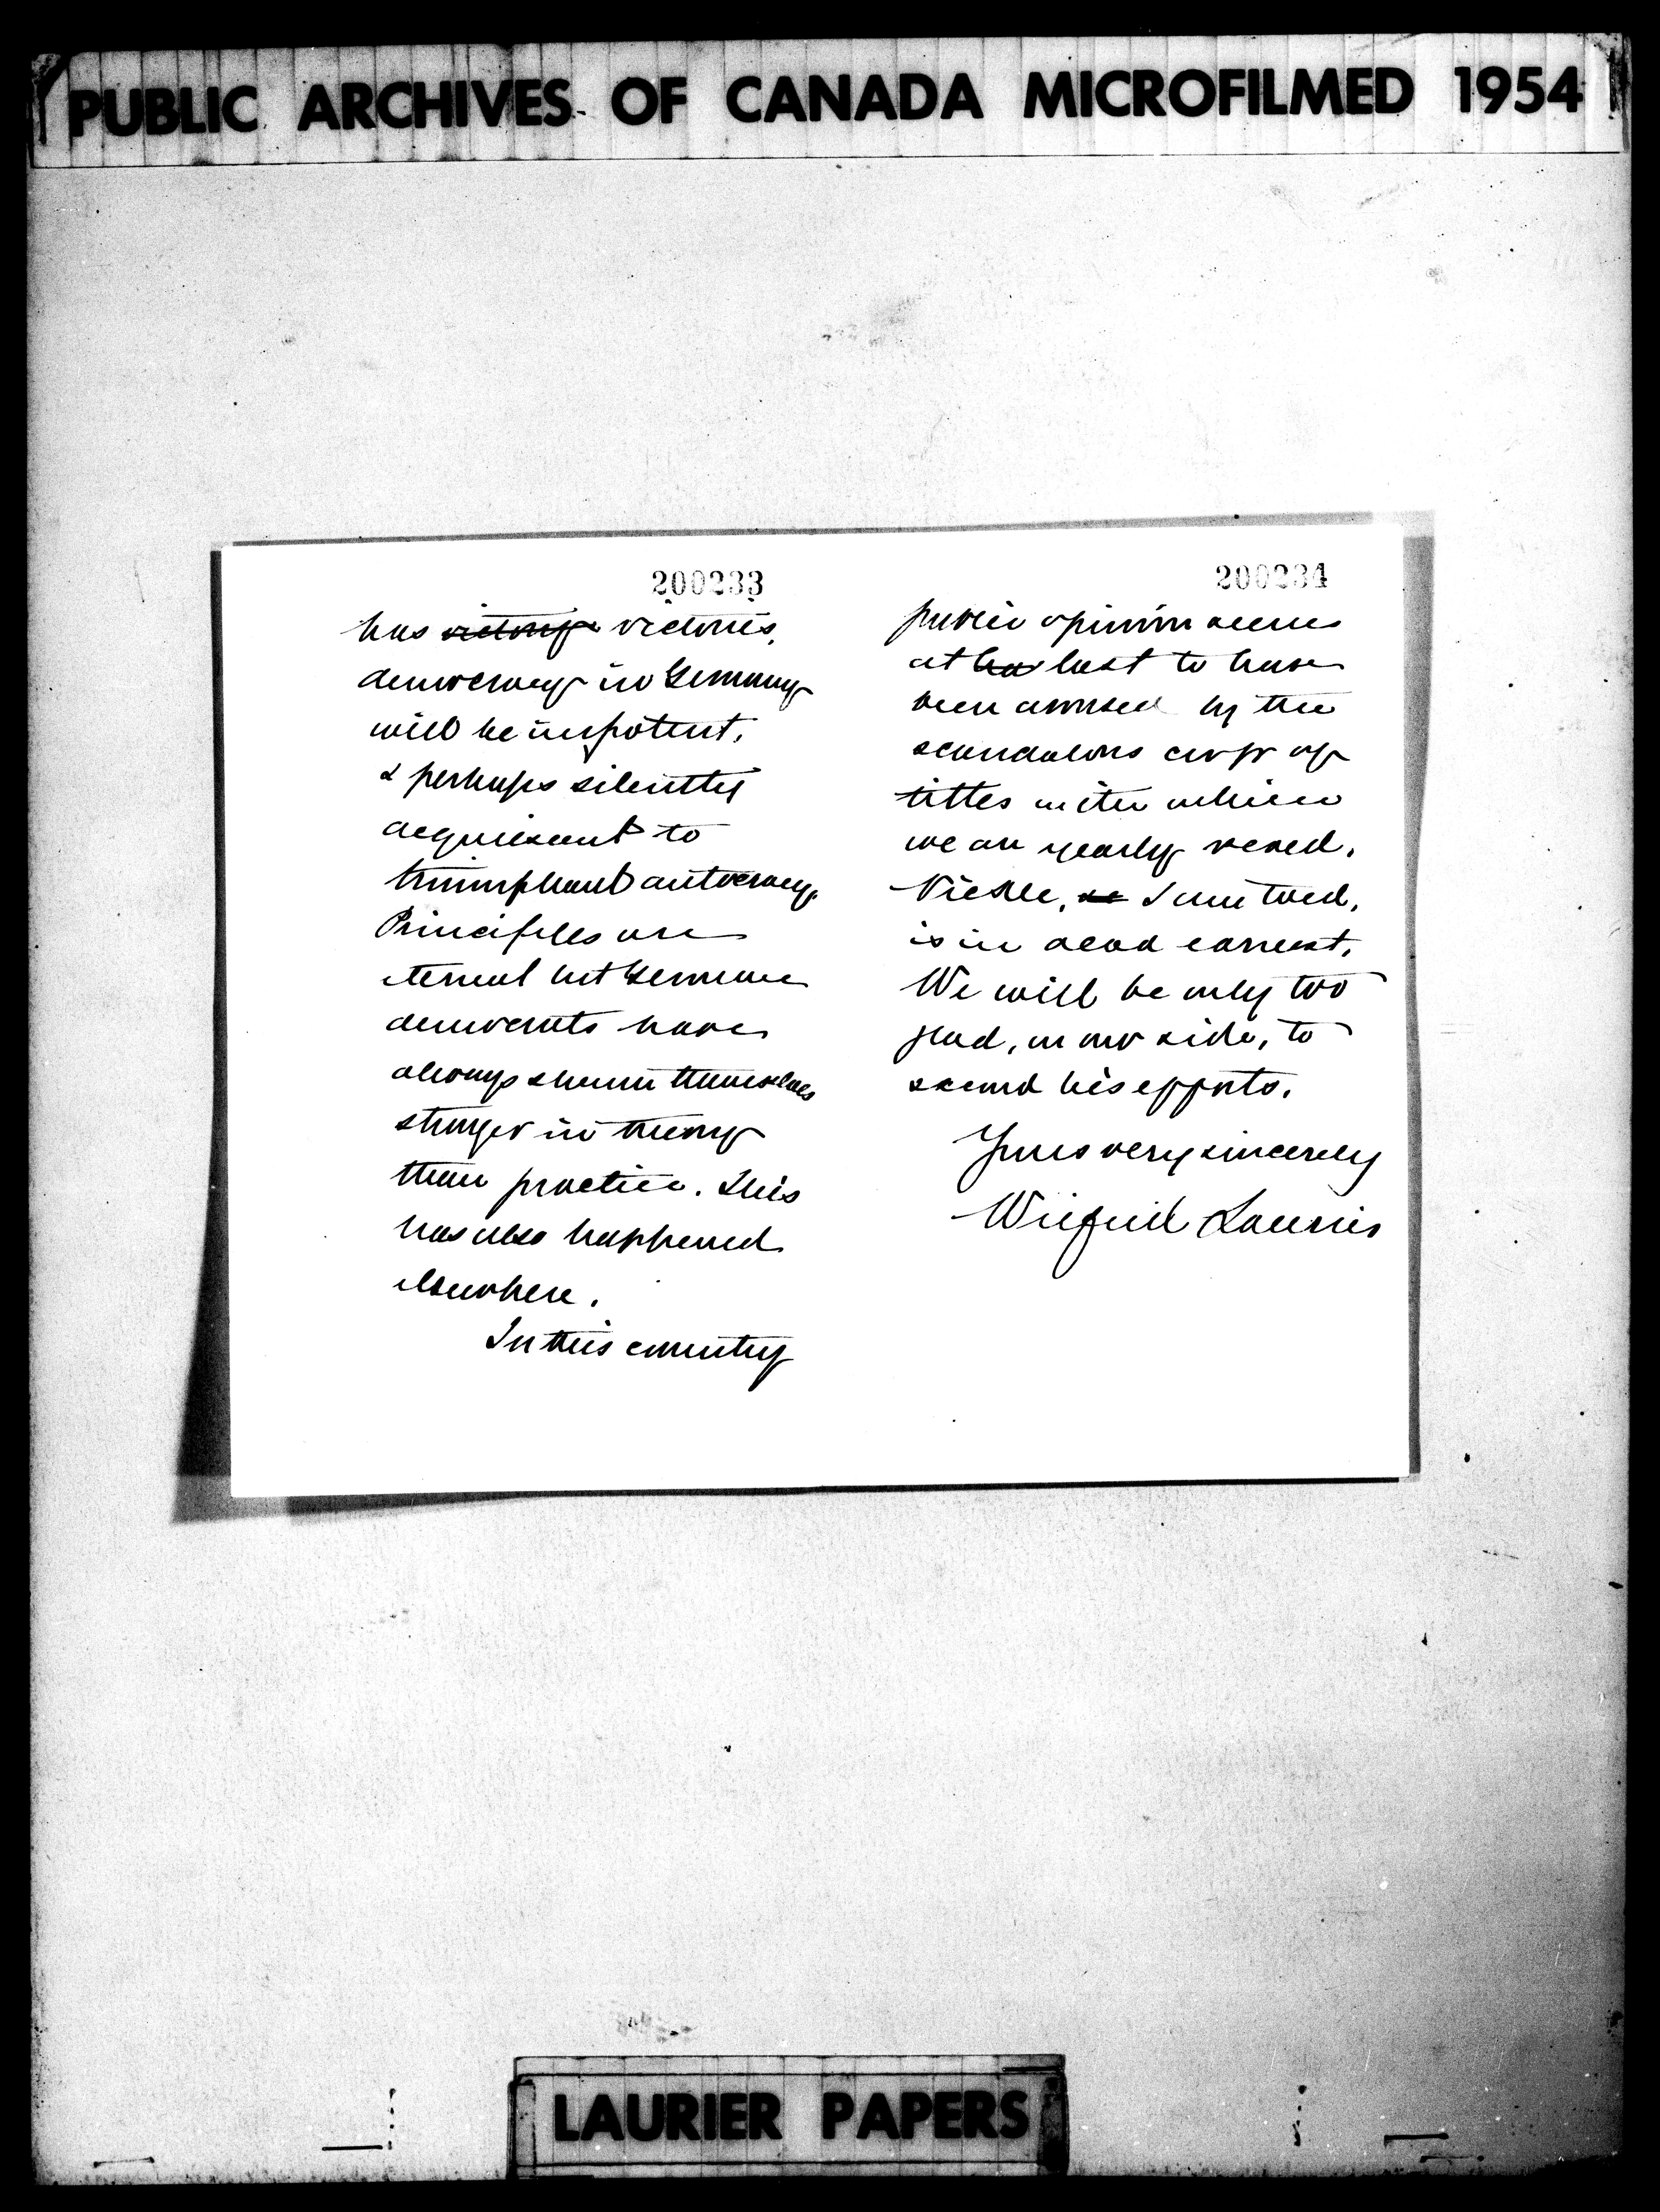 PUBLIC ARCHIVES OF CANADA MICROFILMED 1954
200233
has victory victories,
democracy in Germany
will be impotent,
& perhaps silently
acquiescent to
triumphant autocracy.
Principles are
eternal but German
democrats have
always shown themselves
stronger in theory
than practice. This
has also happened
elsewhere.
In this country
200234
public opinion seems
at last to have
been aroused by the
scandalous crop of
titles with which
we are yearly vexed.
Nickle, I am told,
is in dead earnest.
We will be only too
glad, on our side, to
second his efforts.
Yours very sincerely
Wilfrid Laurier
LAURIER PAPERS